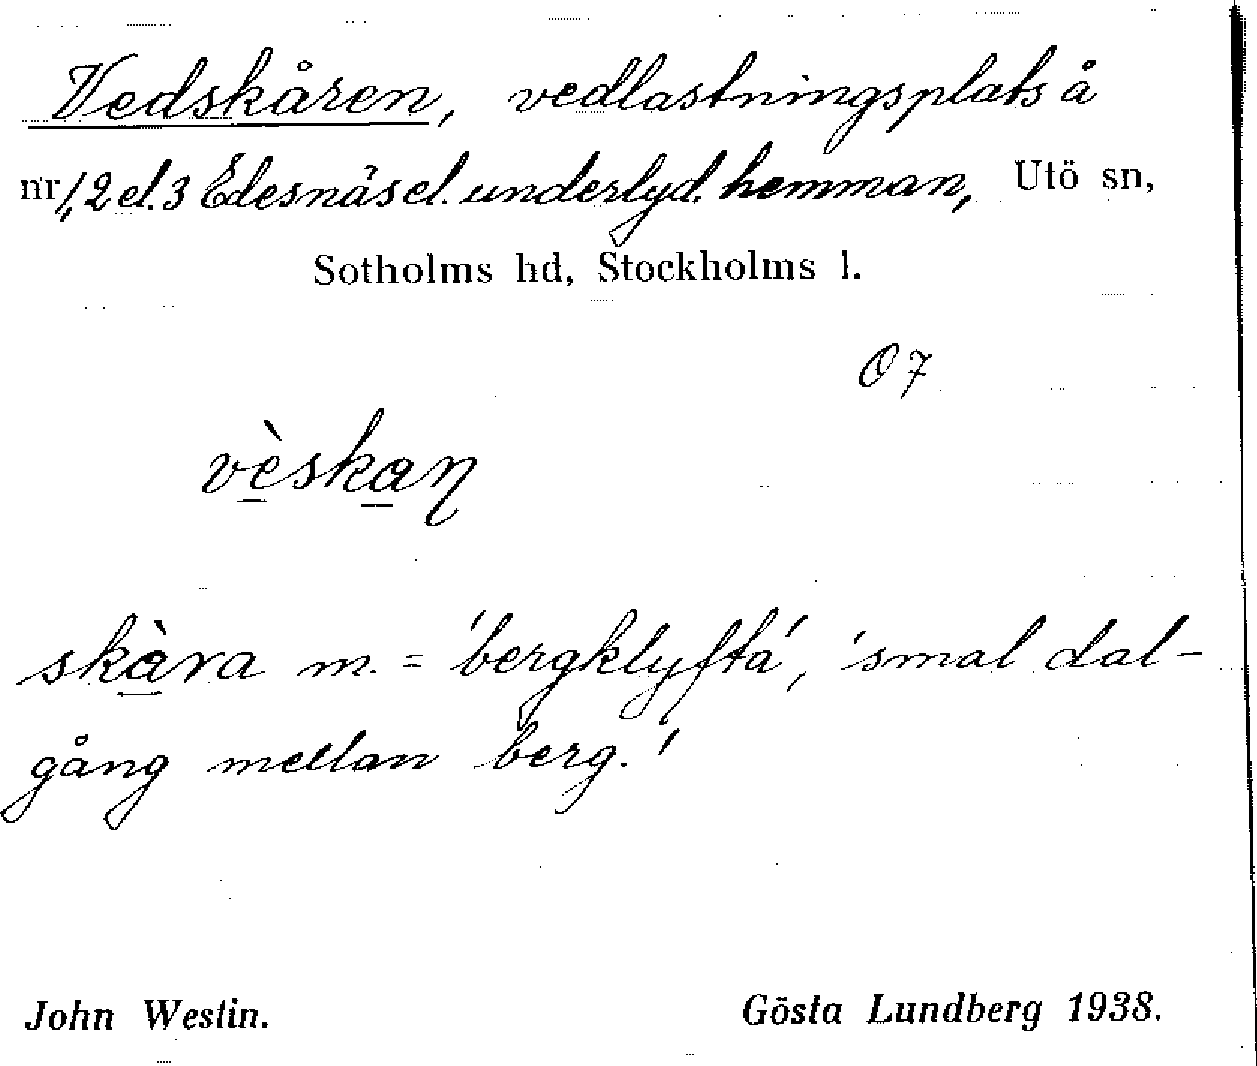 Vedskåren, vedlastningsplats å
nr 1, 2 el. 3 Edesnäs el. underlyd. hemman, Utö sn,
Sotholms hd, Stockholms l.
O7
vèskaɳ
skàra m. = 'bergklyfta', 'smal dal-
gång mellan berg.'
John Westin. Gösta Lundberg 1938.